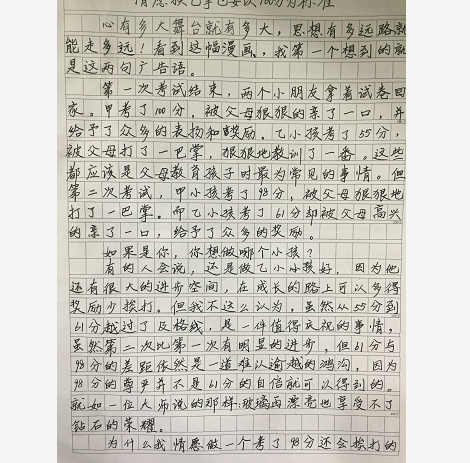 情愿挨巴掌也要以100分为标准
心有多大舞台就有多大，思想有多远路就
能走多远！看到这幅漫画，我第一个想到的就
是这两句广告语。
第一次考试结束，两个小朋友拿着试卷回
家。甲考了100分，被父母狠狠的亲了一口，并
给予了众多的表扬和鼓励。乙小孩考了55分，
被父母打了一巴掌，狠狠地教训了一番。这些
都应该是父母教育孩子时最为常见的事情。但
第二次考试，甲小孩考了98分，被父母狠狠地
打了一巴掌。而乙小孩考了61分却被父母高兴
的亲了一口，给予了众多的奖励。
如果是你，你想做哪个小孩？
有的人会说，还是做乙小小孩好，因为他
还有很大的进步空间，在成长的路上可以多得
奖励少挨打。但我不这么认为，虽然从55分到
61分越过了及格线，是一件值得庆祝的事情，
虽然第二次比第一次有明显的进步，但61分与
98分的差距依然是一道难以逾越的鸿沟，因为
98分的尊严并不是61分的自信就可以得到的。
就如一位大师说的那样:玻璃再漂亮也享受不了
钻石的荣耀。
为什么我情愿做一个考了98分还会挨打的